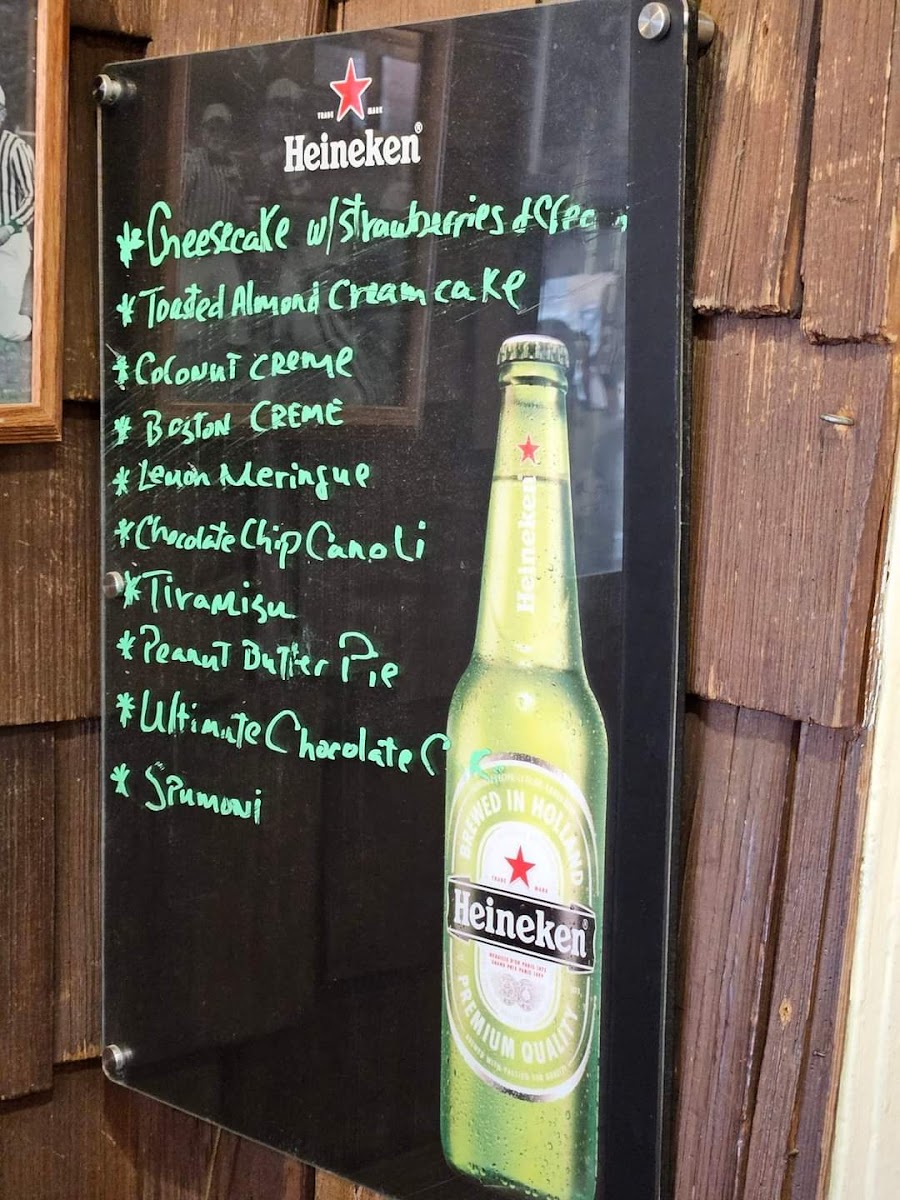 TRADE MARK
Heineken®
*Cheesecake w/strawberries & Cream
*Toasted Almond Cream cake
*Coconut creme
*Boston Creme
*Lemon Meringue
*Chocolate Chip Canoli
*Tiramisu
*Peanut Butter Pie
*Ultimate Chocolate C
*Spumoni
Heineken
BREWED IN HOLLAND
TRADE MARK
Heineken®
PREMIUM QUALITY